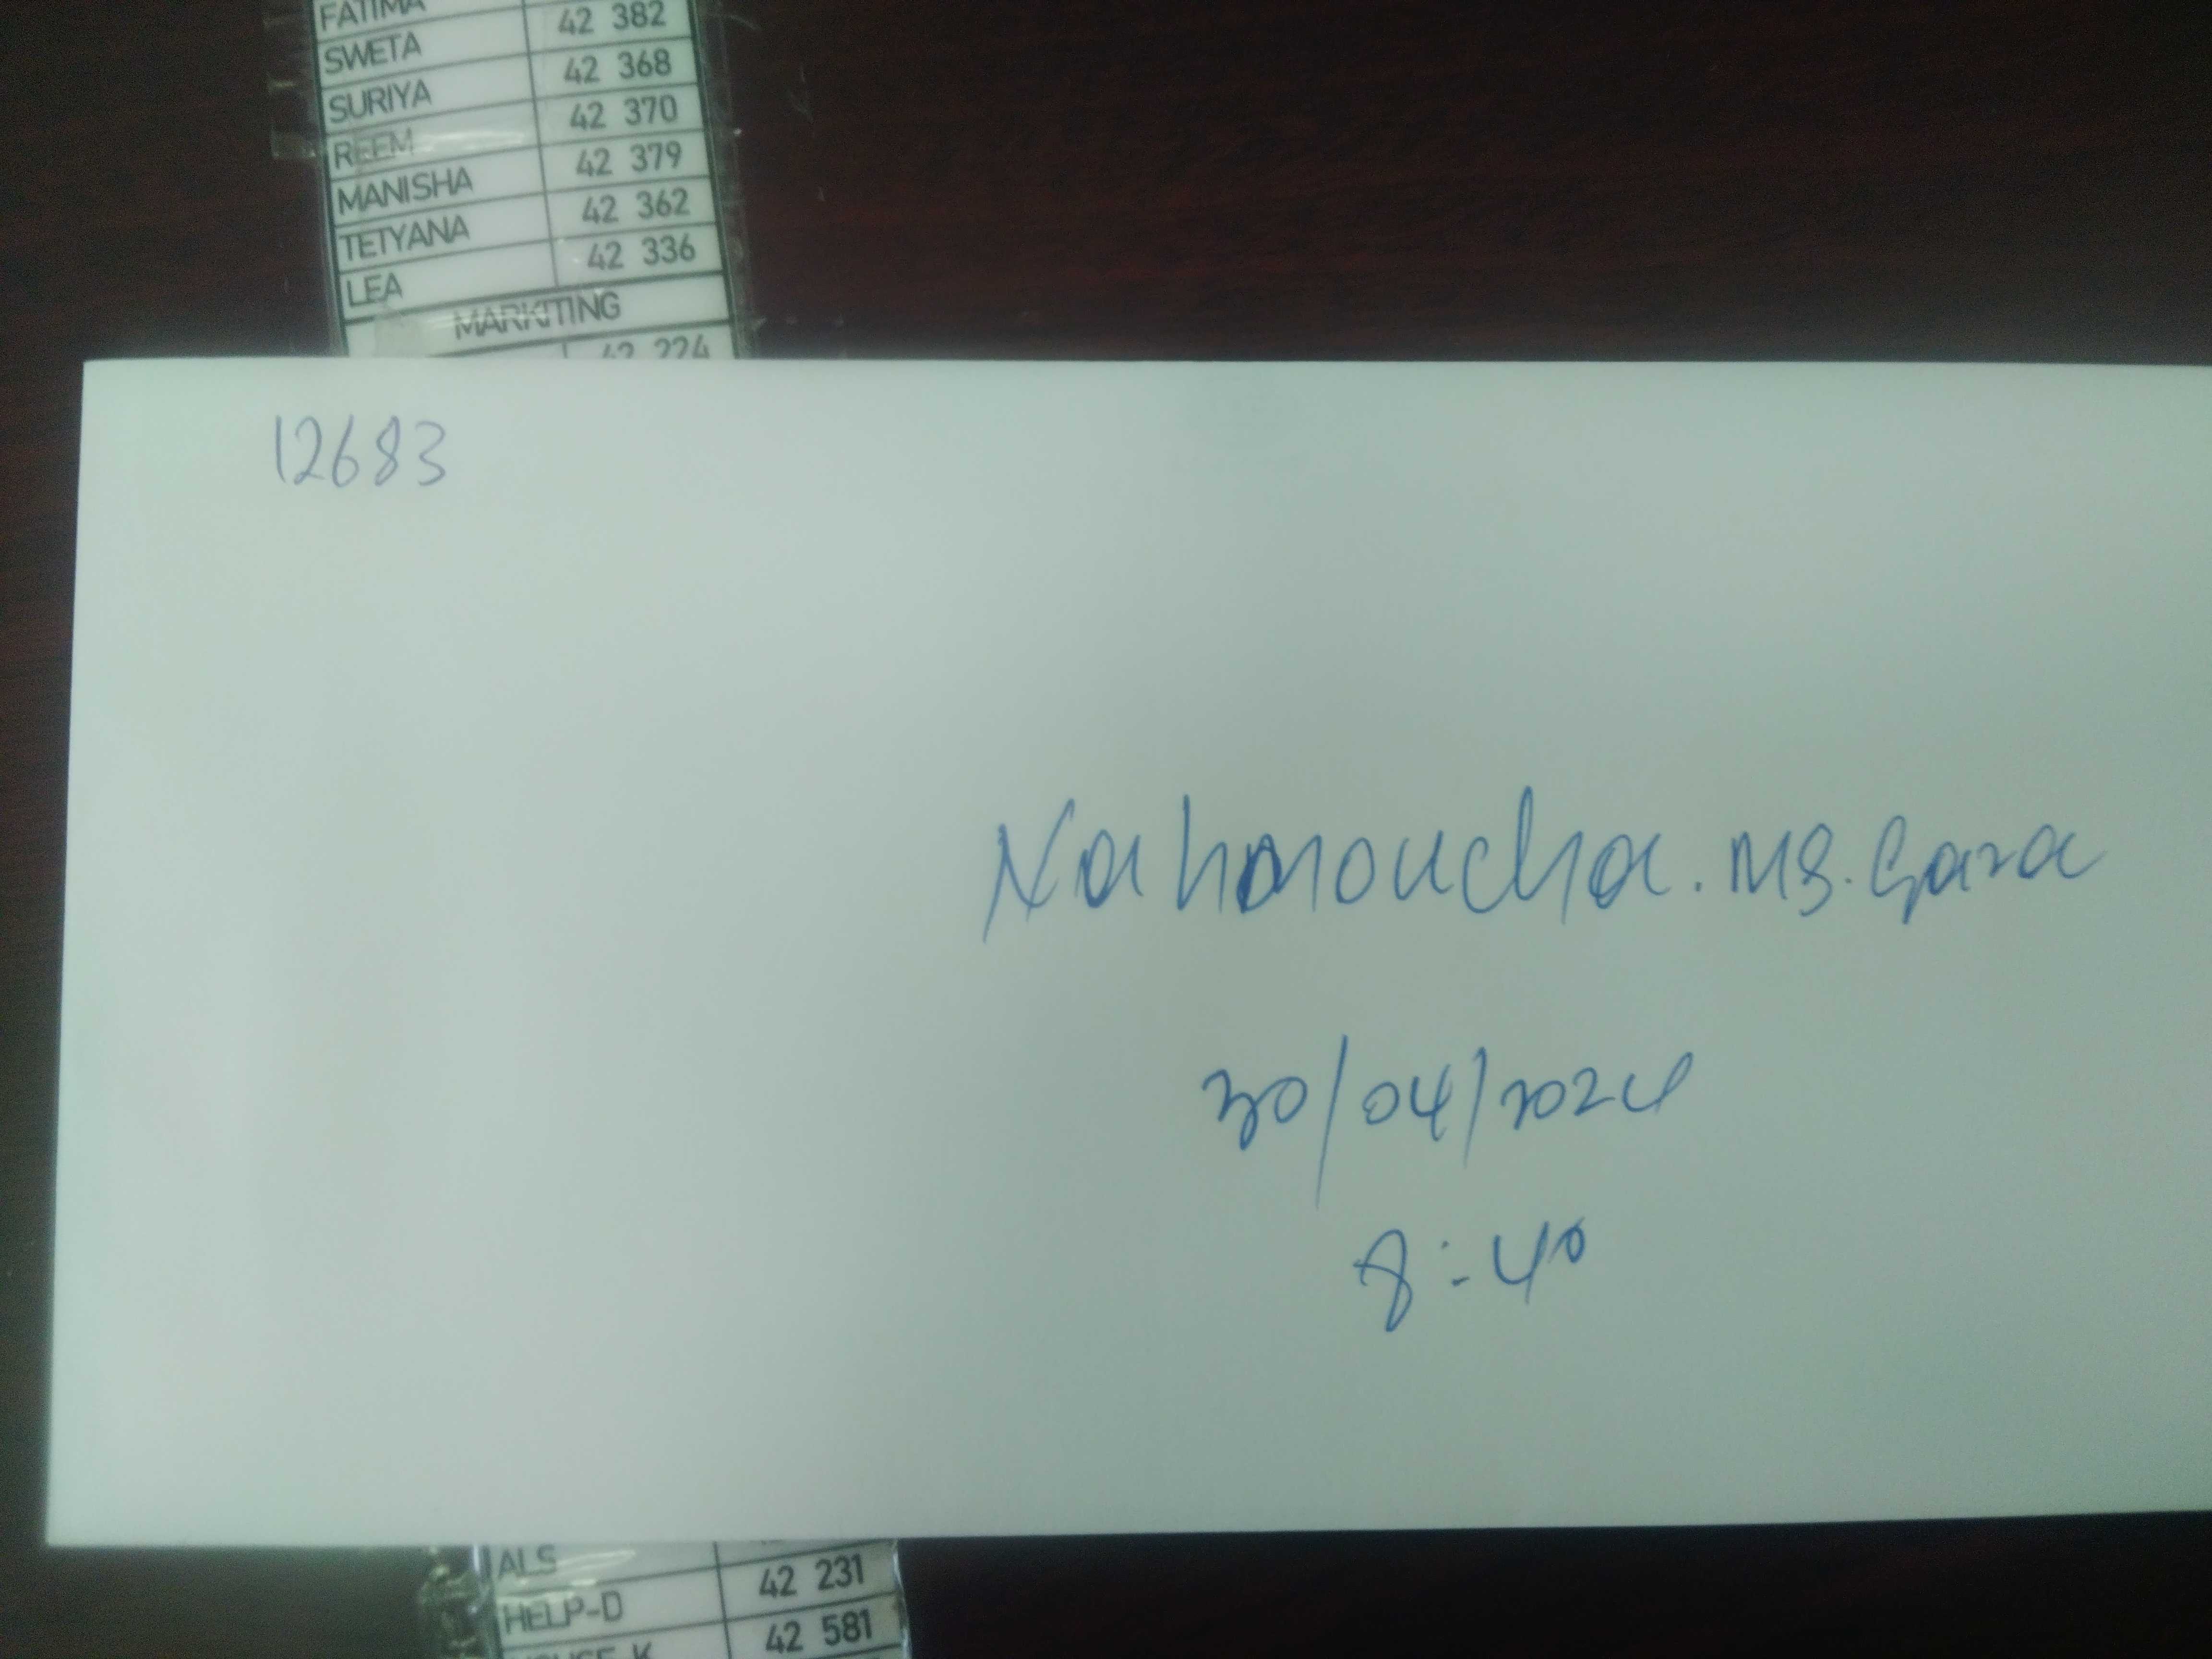 FATIMA 42 382
SWETA 42 368
SURIYA 42 370
REEM 42 379
MANISHA 42 362
TETYANA 42 336
LEA
MARKITING
42 224
12683
Nahmoucha. MS. Sara
30/04/2024
8:40
ALS 42 231
HELP-D 42 581